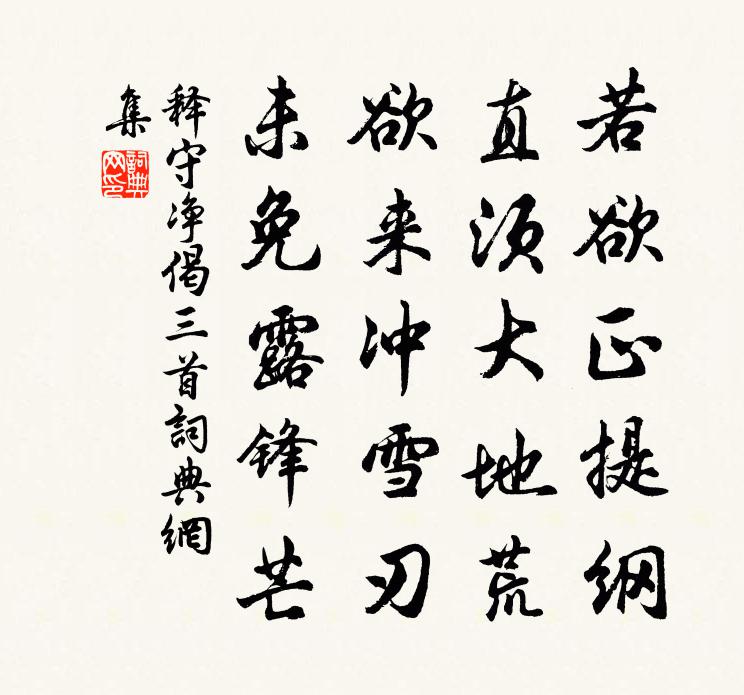 若欲正提纲
直须大地荒
欲来冲雪刃
未免露锋芒
释守净偈三首詞典網
集
詞典
网印